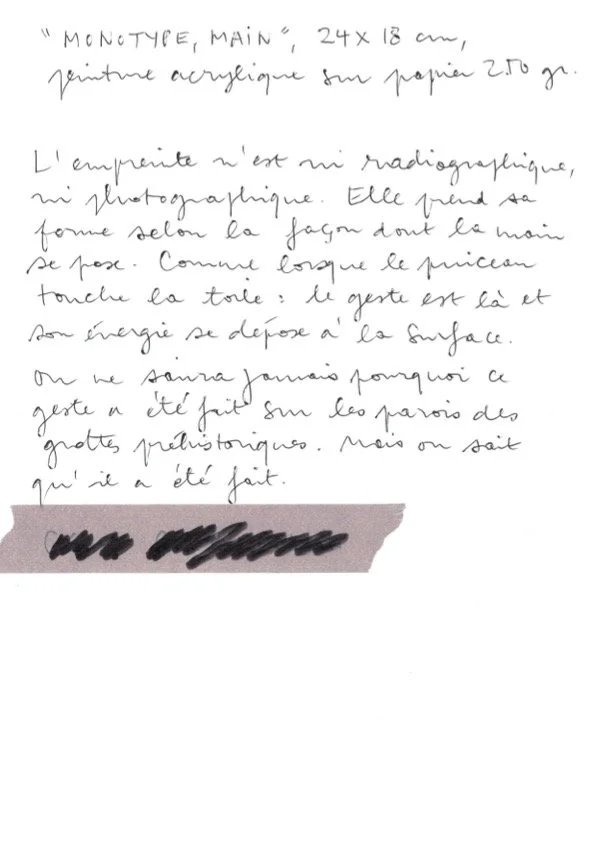 "MONOTYPE, MAIN", 24 x 18 cm,
peinture acrylique sur papier 250 gr.
L'empreinte n'est ni radiographique,
ni photographique. Elle prend sa
forme selon la façon dont la main
se pose. Comme lorsque le pinceau
touche la toile : le geste est là et
son énergie se dépose à la surface.
On ne saura jamais pourquoi ce
geste a été fait sur les parois des
grottes préhistoriques. Mais on sait
qu'il a été fait.